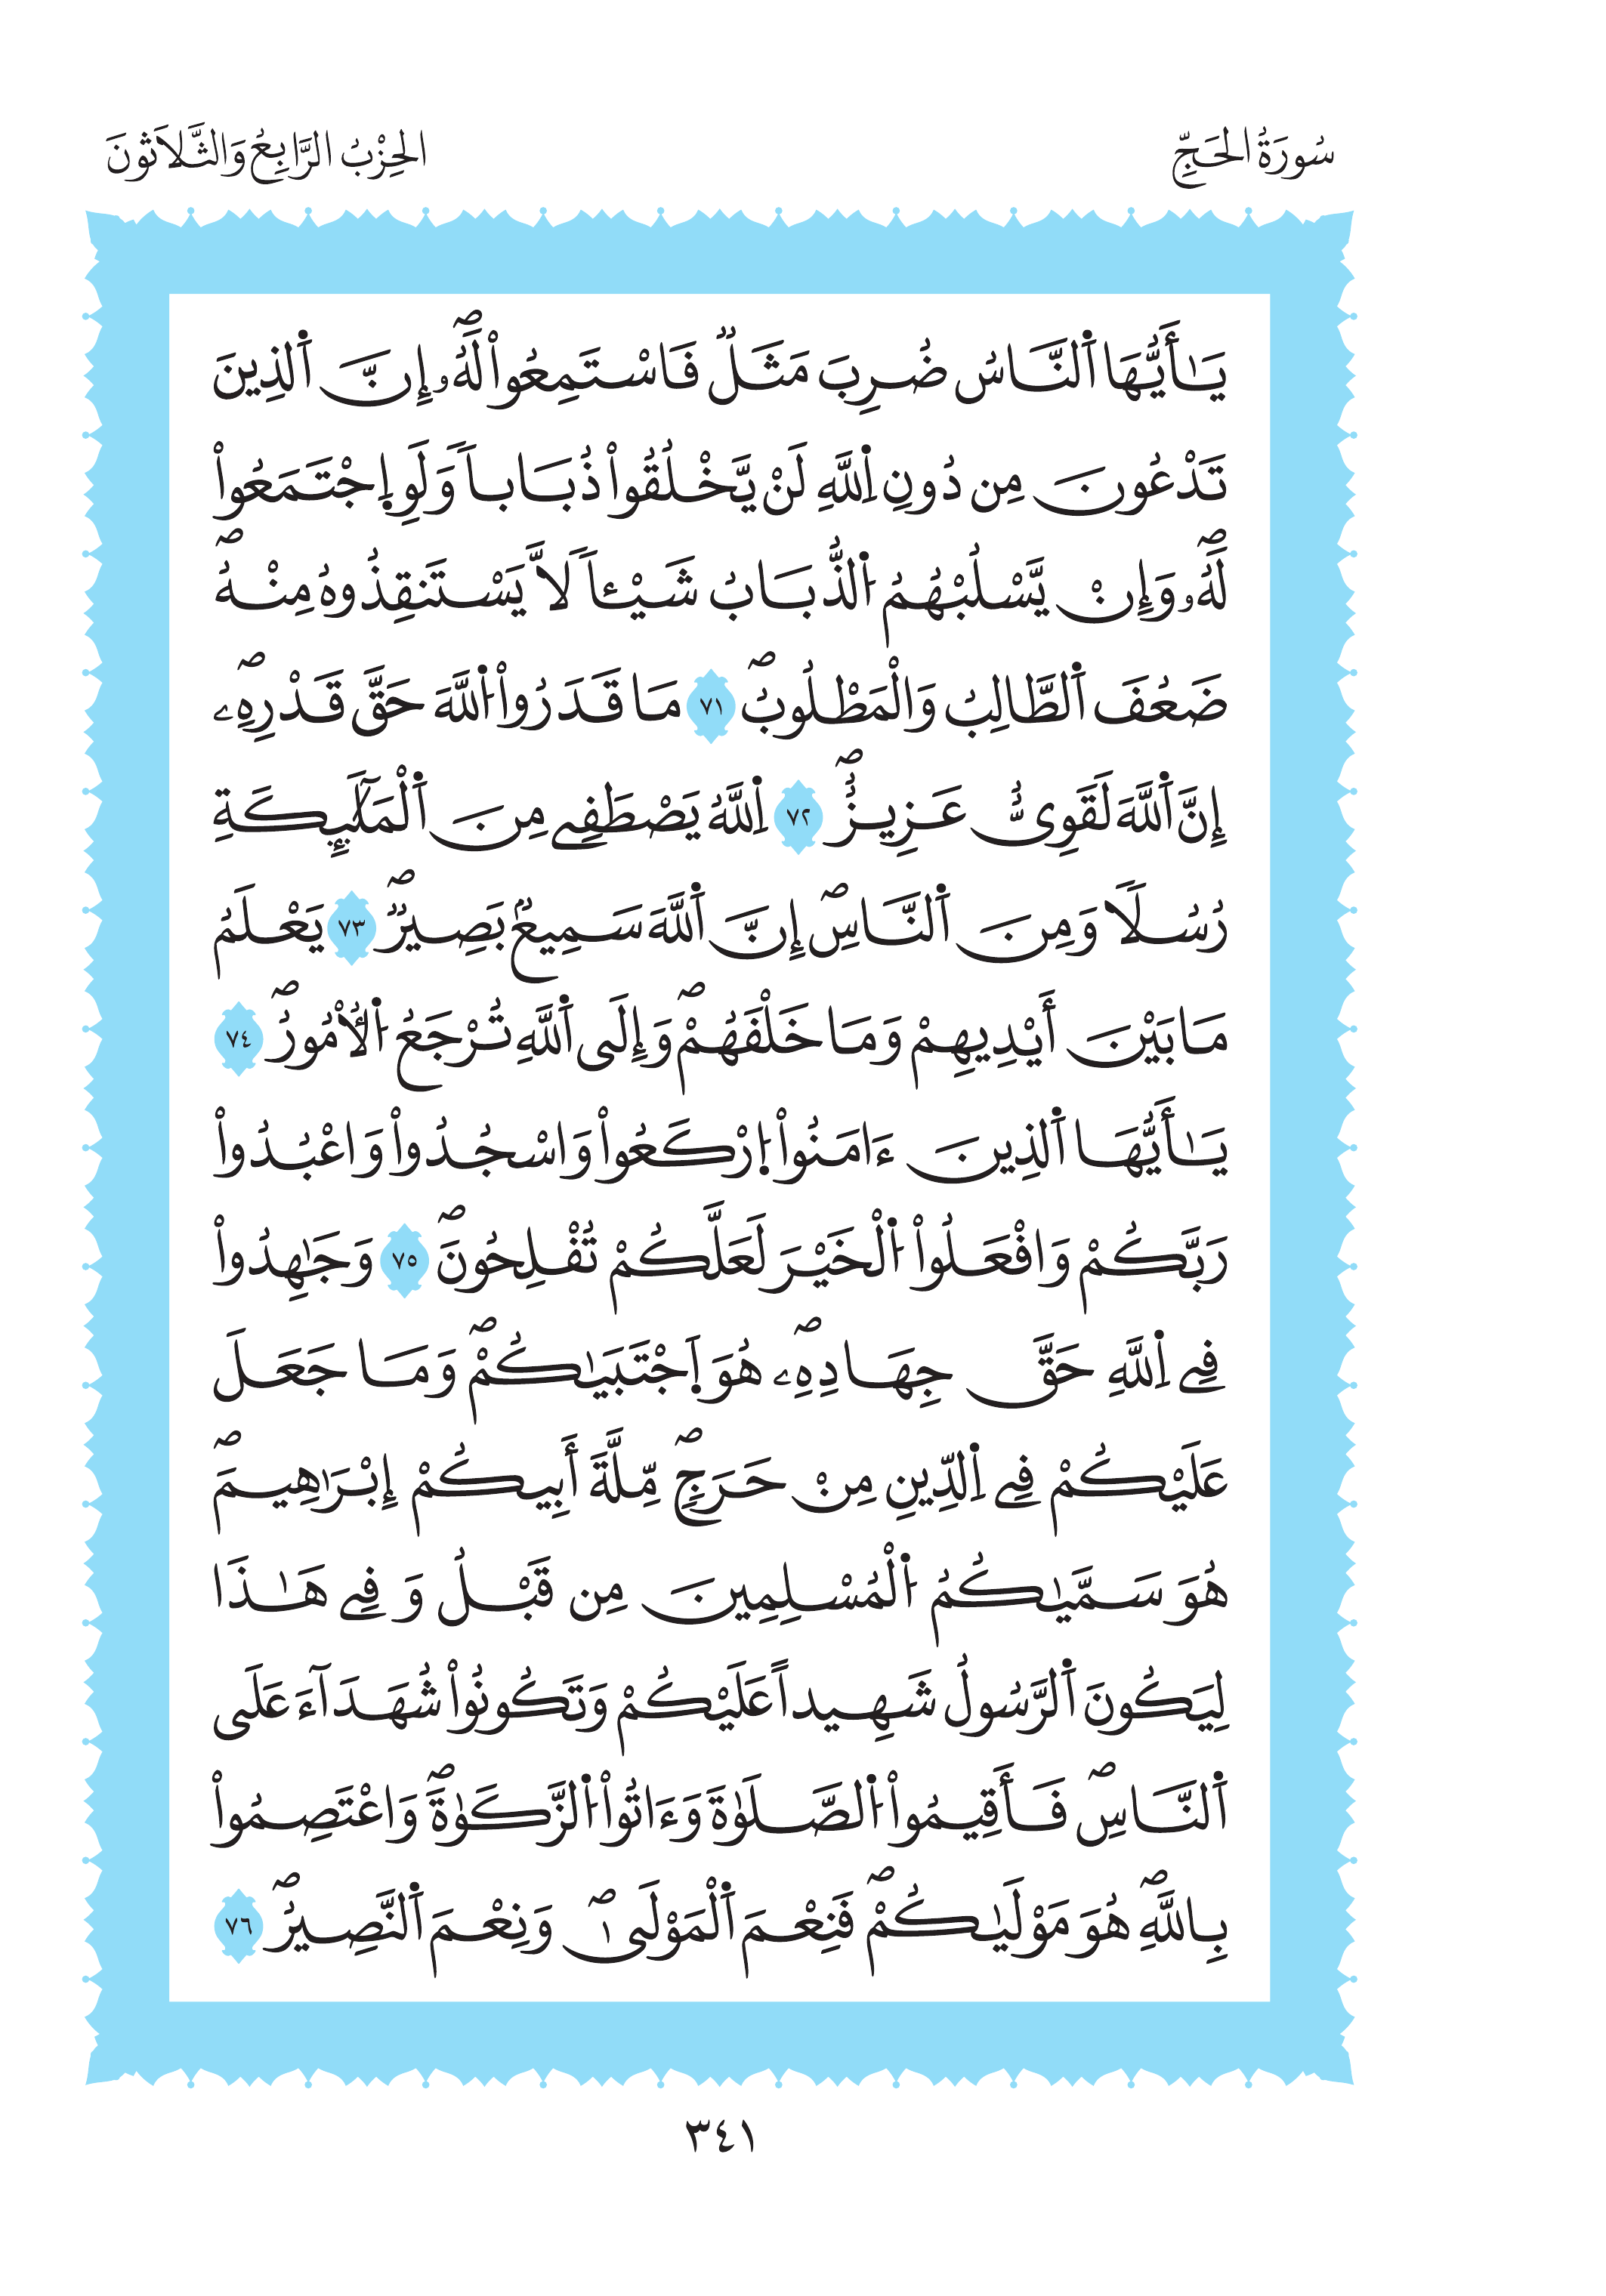 سُورَةُ الحَجِّ
الحِزْبُ الرَّابِعُ وَالثَّلَاثُونَ
يَـٰأَيُّهَا اَ۬لنَّاسُ ضُرِبَ مَثَلٞ فَاسْتَمِعُواْ لَهُۥٓۖ إِنَّ اَ۬لذِينَ
تَدْعُونَ مِن دُونِ اِ۬للَّهِ لَنْ يَّخْلُقُواْ ذُبَاباٗ وَلَوِ اِ۪جْتَمَعُواْ
لَهُۥۖ وَإِنْ يَّسْلُبْهُمُ اُ۬لذُّبَابُ شَيْـٔاٗ لَّا يَسْتَنقِذُوهُ مِنْهُۖ
ضَعُفَ اَ۬لطَّالِبُ وَالْمَطْلُوبُۖ ٧١ مَا قَدَرُواْ اُ۬للَّهَ حَقَّ قَدْرِهِۦۖ
إِنَّ اَ۬للَّهَ لَقَوِيٌّ عَزِيزٌۖ ٧٢ اِ۬للَّهُ يَصْطَفِے مِنَ اَ۬لْمَلَٰٓئِكَةِ
رُسُلٗا وَمِنَ اَ۬لنَّاسِۖ إِنَّ اَ۬للَّهَ سَمِيعُۢ بَصِيرٞۖ ٧٣ يَعْلَمُ
مَا بَيْنَ أَيْدِيهِمْ وَمَا خَلْفَهُمْۖ وَإِلَى اَ۬للَّهِ تُرْجَعُ اُ۬لْأُمُورُۖ ٧٤
يَـٰأَيُّهَا اَ۬لذِينَ ءَامَنُواْ اُ۪رْكَعُواْ وَاسْجُدُواْ وَاعْبُدُواْ
رَبَّكُمْ وَافْعَلُواْ اُ۬لْخَيْرَ لَعَلَّكُمْ تُفْلِحُونَۖ ٧٥ وَجَٰهِدُواْ
فِے اِ۬للَّهِ حَقَّ جِهَادِهِۦۖ هُوَ اَ۪جْتَبَيٰكُمْۖ وَمَا جَعَلَ
عَلَيْكُمْ فِے اِ۬لدِّينِ مِنْ حَرَجٖۖ مِّلَّةَ أَبِيكُمْ إِبْرَٰهِيمَۖ
هُوَ سَمَّيٰكُمُ اُ۬لْمُسْلِمِينَ مِن قَبْلُ وَفِے هَـٰذَا
لِيَكُونَ اَ۬لرَّسُولُ شَهِيداً عَلَيْكُمْ وَتَكُونُواْ شُهَدَآءَ عَلَى
اَ۬لنَّاسِۖ فَأَقِيمُواْ اُ۬لصَّلَوٰةَ وَءَاتُواْ اُ۬لزَّكَوٰةَۖ وَاعْتَصِمُواْ
بِاللَّهِۖ هُوَ مَوْلَيٰكُمْۖ فَنِعْمَ اَ۬لْمَوْلَىٰۖ وَنِعْمَ اَ۬لنَّصِيرُۖ ٧٦
٣٤١